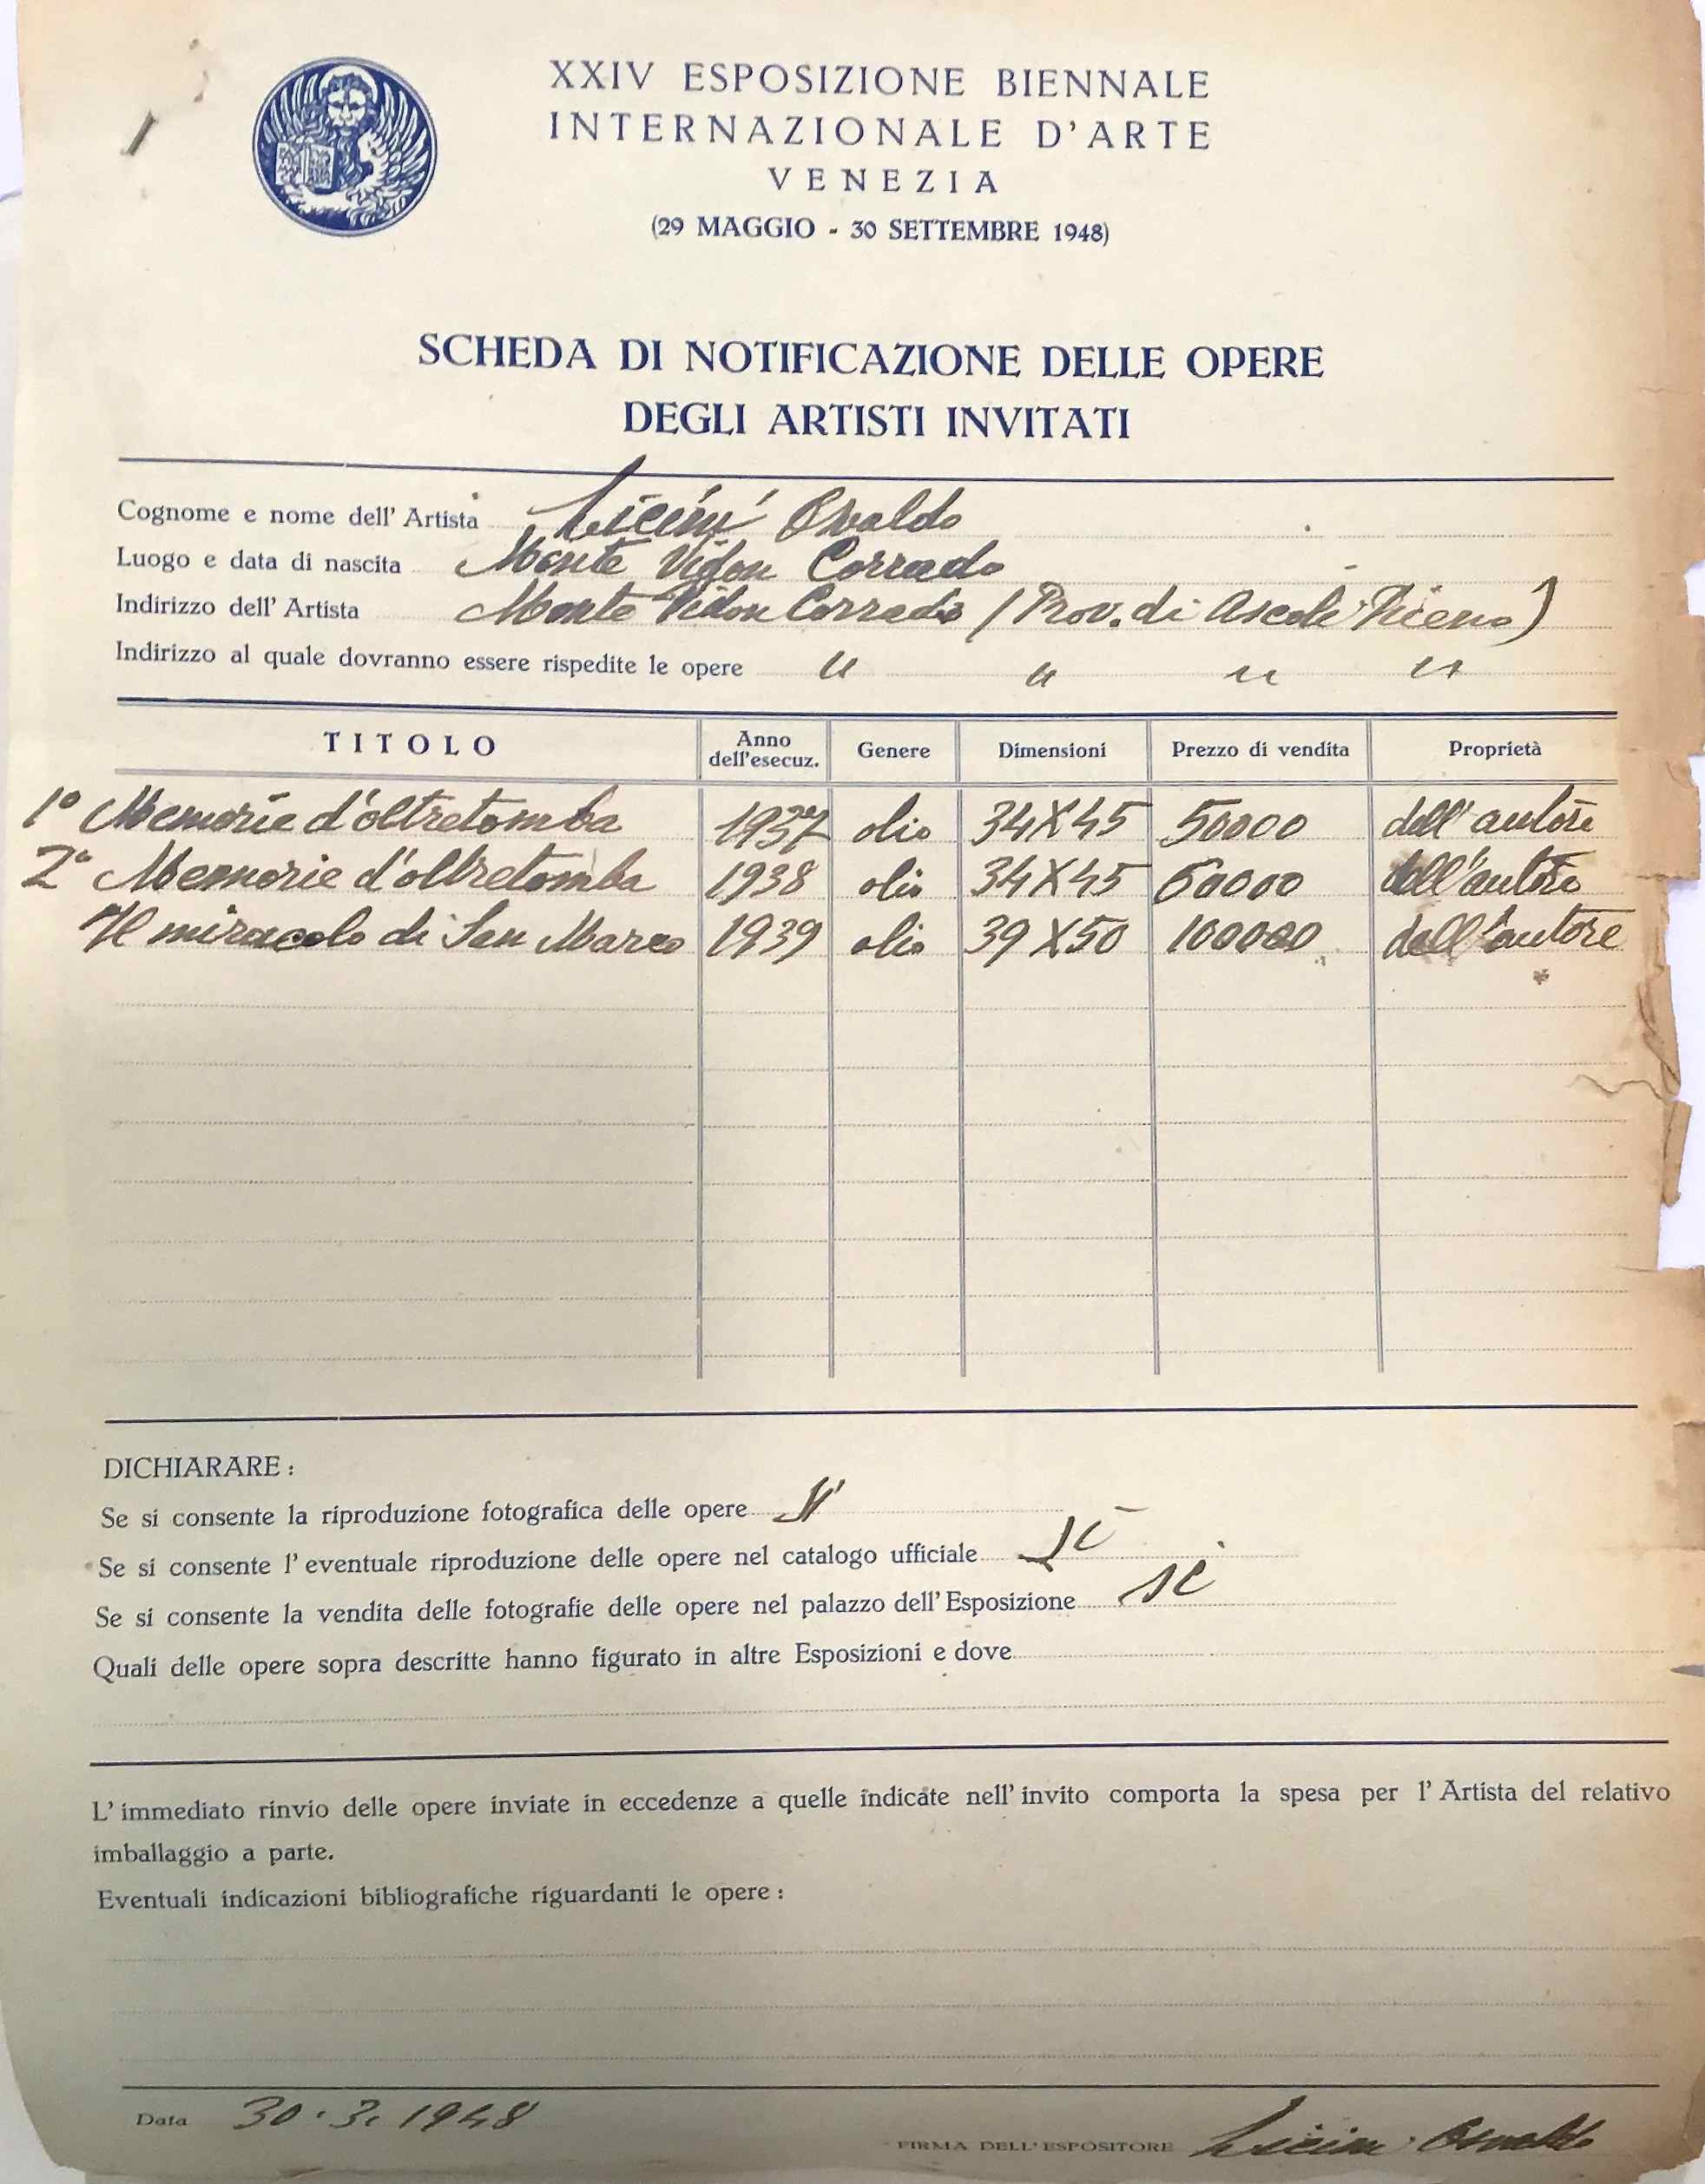 XXIV ESPOSIZIONE BIENNALE
INTERNAZIONALE D'ARTE
VENEZIA
(29 MAGGIO - 30 SETTEMBRE 1948)
SCHEDA DI NOTIFICAZIONE DELLE OPERE
DEGLI ARTISTI INVITATI
Cognome e nome dell' Artista Licini Osvaldo
Luogo e data di nascita Monte Vidon Corrado
Indirizzo dell' Artista Monte Vidon Corrado (Prov. di Ascoli Piceno)
Indirizzo al quale dovranno essere rispedite le opere " " " "
TITOLO Anno dell'esecuz. Genere Dimensioni Prezzo di vendita Proprietà
1° Memorie d'oltretomba 1937 olio 34X45 50000 dell'autore
2° Memorie d'oltretomba 1938 olio 34X45 60000 dell'autore
Il miracolo di San Marco 1939 olio 39X50 100000 dell'autore
DICHIARARE :
Se si consente la riproduzione fotografica delle opere si
Se si consente l' eventuale riproduzione delle opere nel catalogo ufficiale si
Se si consente la vendita delle fotografie delle opere nel palazzo dell' Esposizione si
Quali delle opere sopra descritte hanno figurato in altre Esposizioni e dove
L' immediato rinvio delle opere inviate in eccedenze a quelle indicate nell' invito comporta la spesa per l' Artista del relativo
imballaggio a parte.
Eventuali indicazioni bibliografiche riguardanti le opere :
Data 30.3.1948
FIRMA DELL' ESPOSITORE Licini Osvaldo